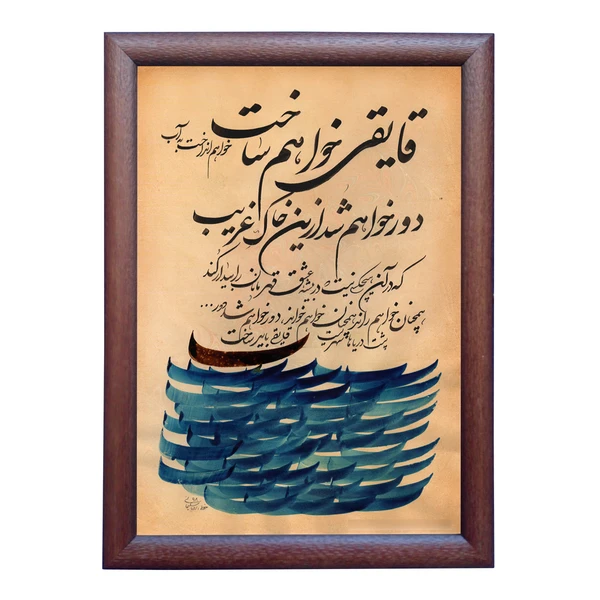 قایقی خواهم ساخت
خواهم انداخت به آب
دور خواهم شد از این خاک غریب
که در آن هیچکسی نیست که در بیشه عشق قهرمانان را بیدار کند
همچنان خواهم راند همچنان خواهم خواند دور خواهم شد دور...
پشت دریاها شهریست قایقی باید ساخت